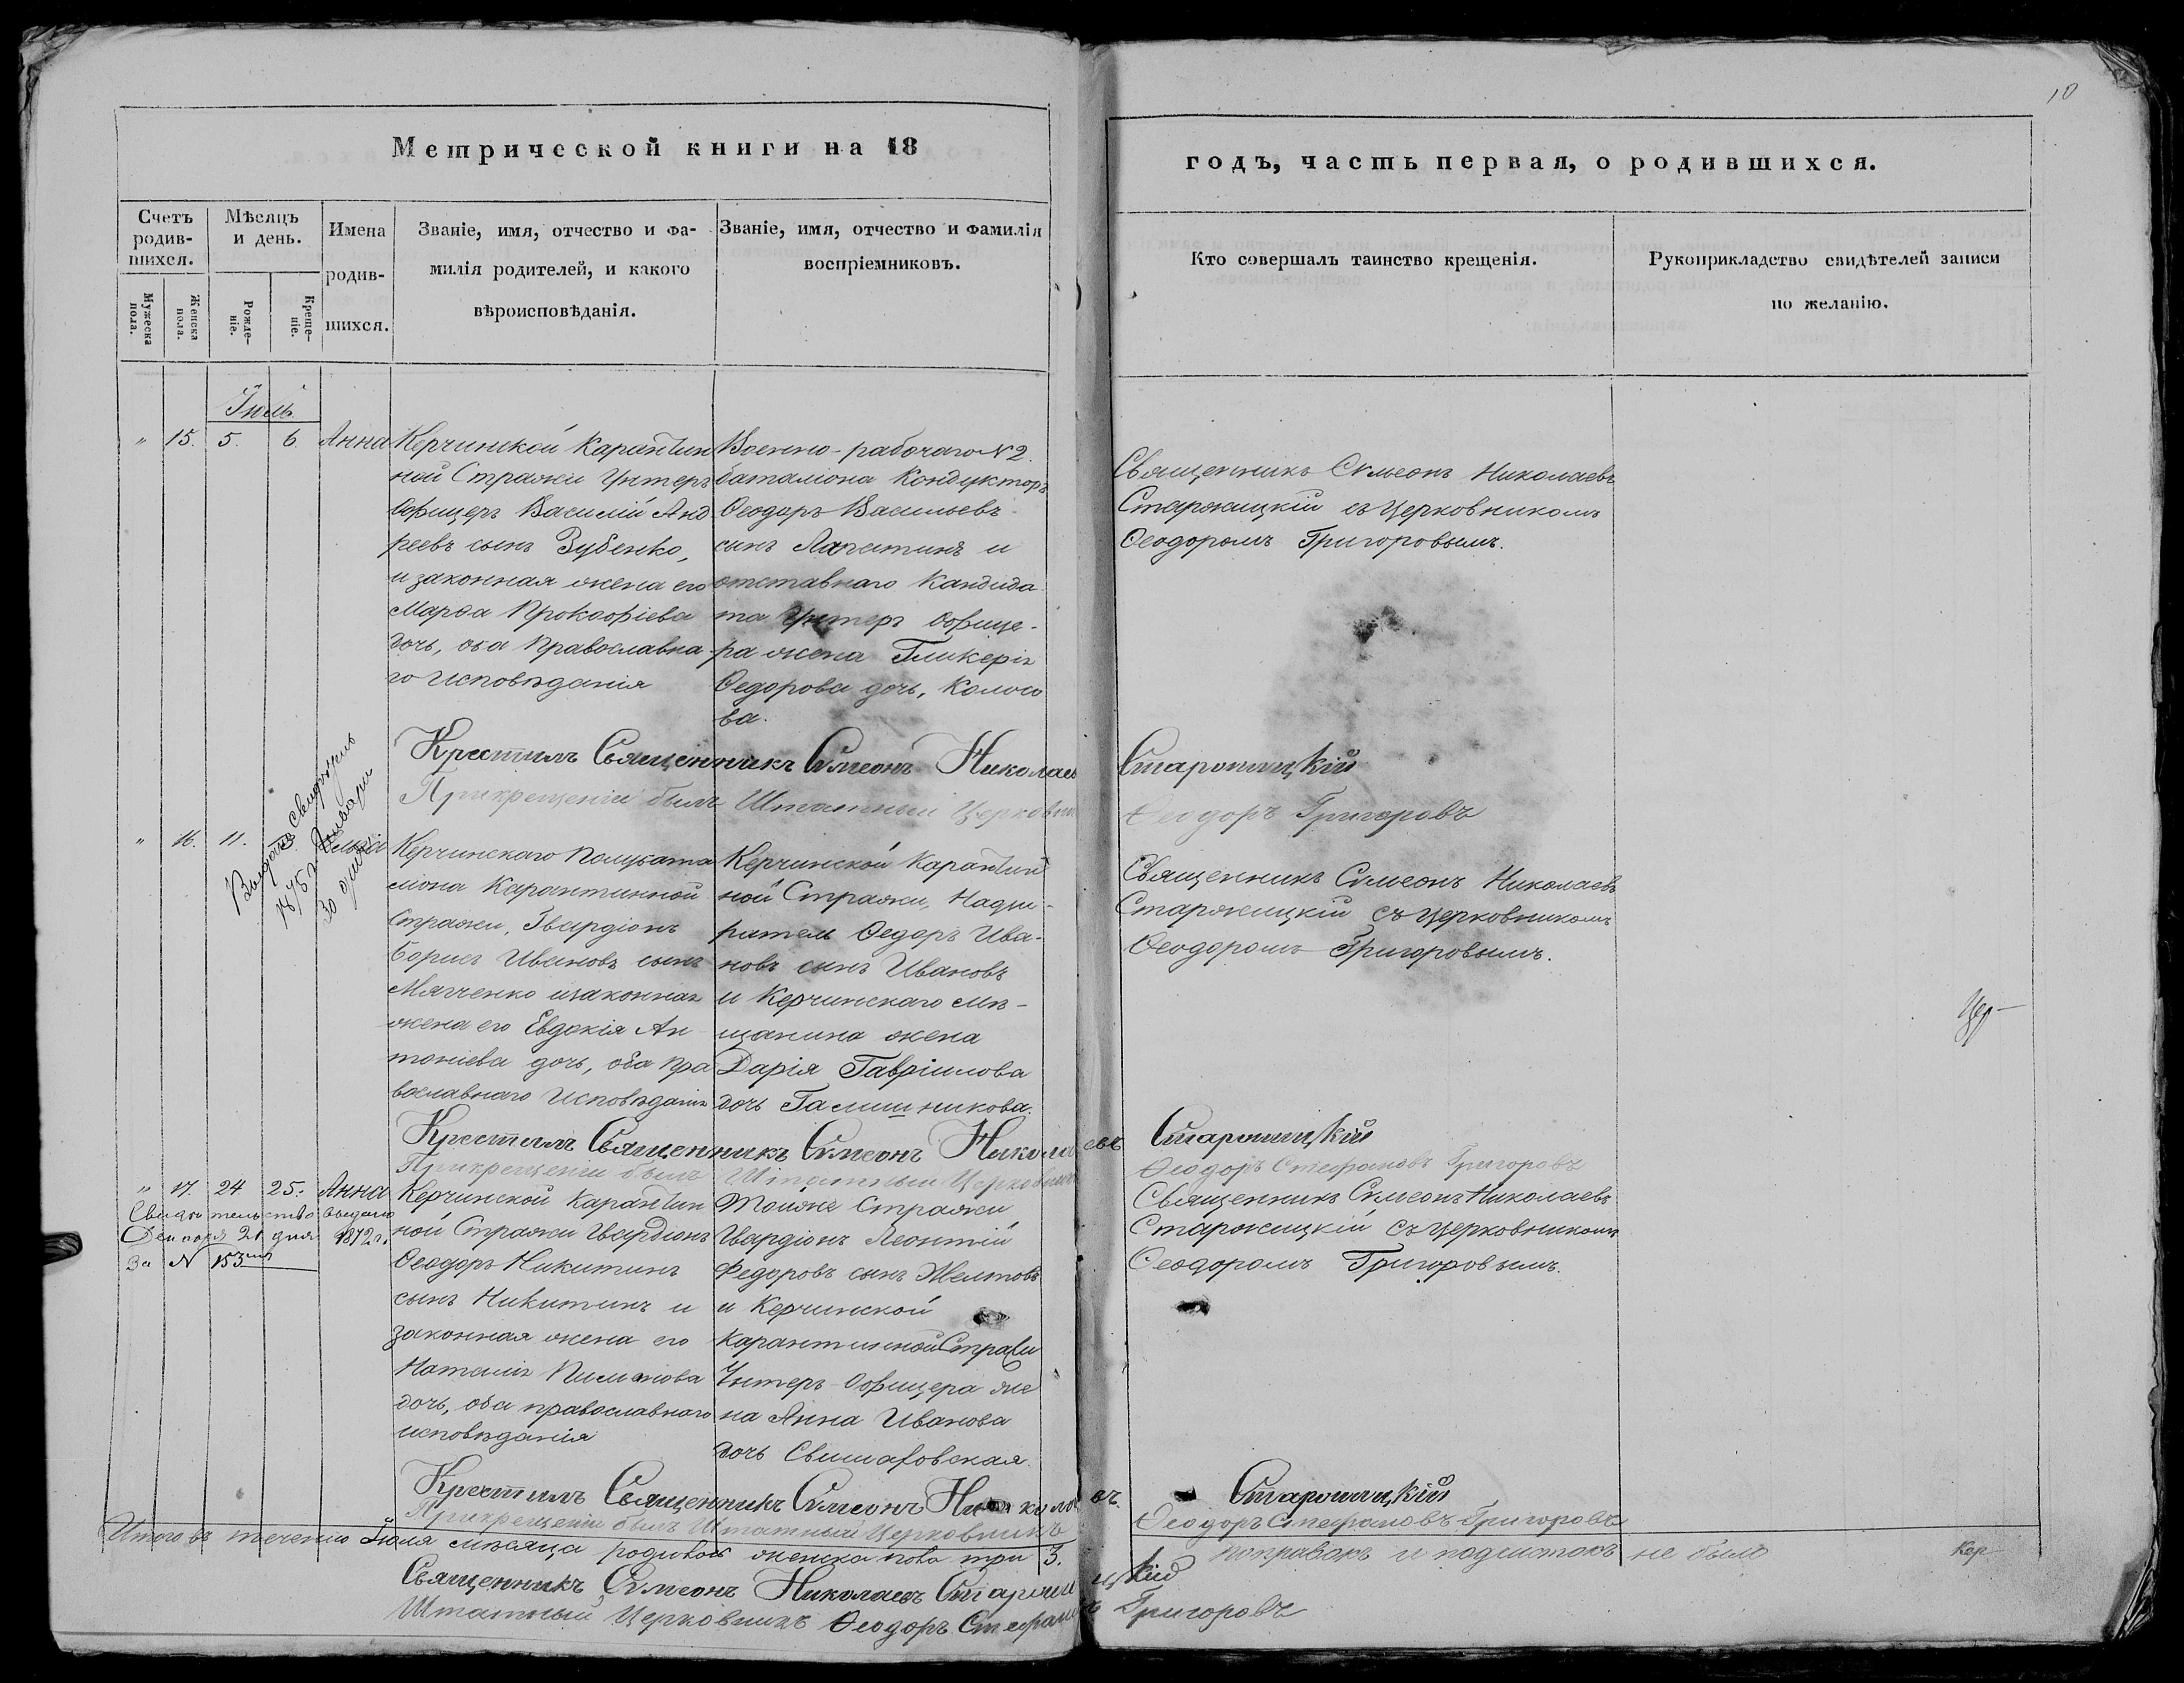 10
Метрической книги на 18
годъ, часть первая, о родившихся.
Счетъ родив-шихся.
Мѣсяцъ и день.
Имена родив-шихся.
Званіе, имя, отчество и фа-милія родителей, и какого вѣроисповѣданія.
Званіе, имя, отчество и фамилія воспріемниковъ.
Кто совершалъ таинство крещенія.
Рукоприкладство свидѣтелей записи по желанію.
Мужеска пола.
Женска пола.
Рожде-ніе.
Креще-ніе.
Іюль
" 15. 5. 6. Анна
Керчинской Карантин
ной Стражи Унтеръ
Офицеръ Василій Анд
реевъ сынъ Зубенко,
и законная жена его
Марѳа Прокофіева
дочь, оба Православна
го Исповѣданія
Военно-рабочаго №2
баталіона Кондукторъ
Ѳеодоръ Васильевъ
сынъ Лапатинъ и
отставнаго Кандида
та Унтеръ Офице-
ра жена Гликерія
Ѳедорова дочь, Колосо
ва.
Священникъ Симеонъ Николаевъ
Старжицкій съ Церковникомъ
Ѳеодоромъ Григоровымъ.
Крестилъ Священникъ Симеонъ Николаев Старжицкій
При крещеніи былъ Штатный Церковни Ѳеодоръ Григоровъ
" 16. 11.
Января
30 дня
Керчинскаго Полубата
ліона Карантинной
Стражи, Гвардіонъ
Борисъ Ивановъ сынъ
Мягченко и законная
жена его Евдокія Ан
тоніева дочь, оба Пра
вославнаго Исповѣданія
Керчинской Карантин
ной Стражи, Надзи-
ратель Ѳедоръ Ива-
новъ сынъ Ивановъ
и Керчинскаго мѣ-
щанина жена
Дарія Гавріилова
дочь Галишникова.
Священникъ Симеонъ Николаевъ
Старжицкій съ Церковникомъ
Ѳеодоромъ Григоровымъ.
Цер-
Крестилъ Священникъ Симеонъ Николаевъ Старжицкій
При крещеніи былъ Штатный Церковник Ѳеодоръ Стефановъ Григоровъ
" 17. 24 25. Анна
Свидѣтельство выдано
21 дня 1872 г.
За № 153
Керчинской Карантин
ной Стражи Гвардіонъ
Ѳеодоръ Никитинъ
сынъ Никитинъ и
законная жена его
Наталія Пиминова
дочь, оба православнаго
исповѣданія
Тойже Стражи
Гвардіонъ Леонтій
Федоровъ сынъ Желтовъ
и Керчинской
Карантинной Стражи
Унтеръ-Офицера же
на Анна Иванова
дочь
Священникъ Симеонъ Николаевъ
Старжицкій съ церковникомъ
Ѳеодоромъ Григоровымъ.
Крестилъ Священникъ Симеонъ Николаевъ. Старжицкій
При крещеніи былъ Штатный Церковникъ Ѳеодоръ Стефановъ Григоровъ
Итого въ теченіи Іюля мѣсяца родилось женска пола три 3. поправокъ и подчистокъ не было Кер-
Священникъ Симеонъ Николаевъ Старжицкій
Штатный Церковникъ Ѳеодоръ Стефановъ Григоровъ